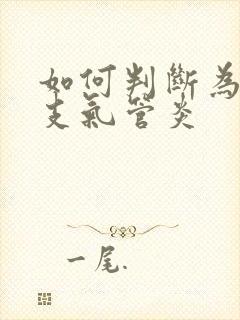 如何判斷為
支氣管炎
一尾.